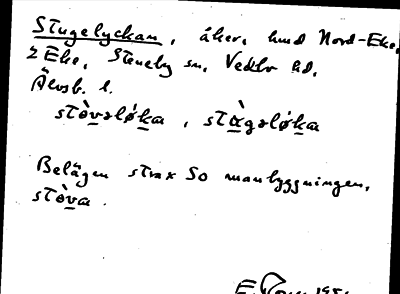 Stugelyckan, åker, hmd Nord-Eke,
2 Eke, Steneby sn, Vedbo hd,
Älvsb. l.
stòvəlǿka , stàgəlǿka
Belägen strax SO manbyggningen,
stòva .